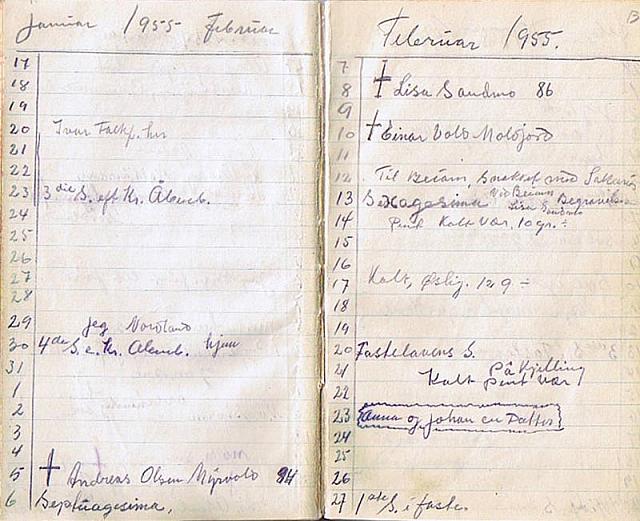 Januar 1955 Februar
17
18
19
20 Ivar Falkf. hr
21
22
23 3die S. eft Kr. Åbenb.
24
25
26
27
28
29 jeg Nordland
30 4de S. e. Kr. Åbenb. hjem
31
1
2
3
4
5 † Andreas Olsen Myrvold 84
6 Septuagesima,
Februar 1955.
7
8 † Lisa Sandmo 86
9
10 † Einar Vold Moldjord
11
12 Til Beiarn,
13 Sexagesima Ved Beiarn Lisa Sandmo Begravelse
14 Pent Kalt Vær, 10 gr. ÷
15
16
17 Kalt, 12 g ÷
18
19
20 Fastelavens S.
21 På Kjelling
22 Kalt Pent Vær
23 Anna og Johan en Datter
24
25
26
27 1ste S. i faste